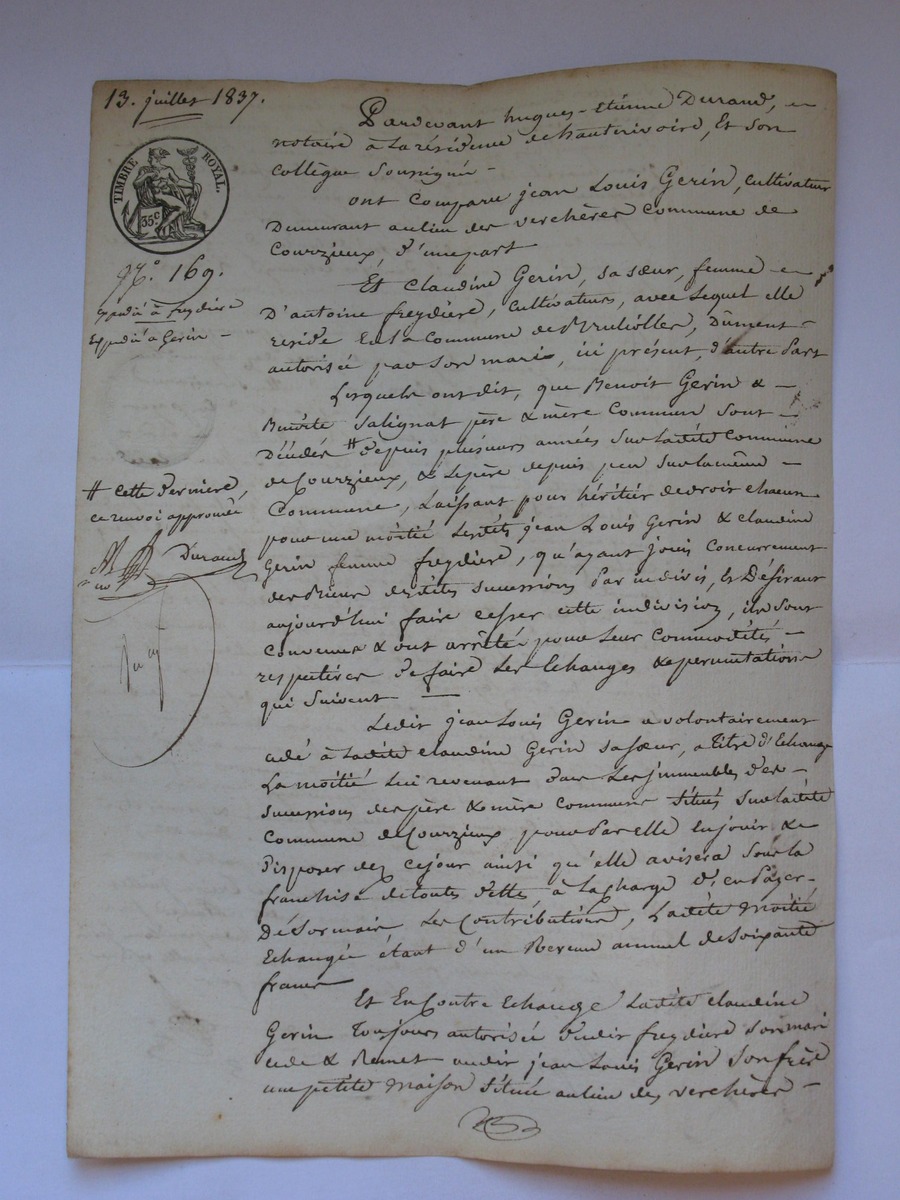 13. juillet 1837.
TIMBRE ROYAL.
35c
N.° 169.
Expédié à freydière
Expédié à Gerin –
Pardevant hugues-étienne Durand,
notaire à la résidence de hauterivoire, Et son
collègue soussignés –
ont comparu jean Louis Gerin, cultivateur
Demeurant au lieu des verchères commune de
Courzieux, d'une part
Et Claudine Gerin, sa sœur, femme
D'antoine freydière, cultivateurs, avec lequel elle
reside En la Commune de Brullolles, Dûment
autorisée par son mari, ici présent, d'autre part
Lesquels ont dit, que Benoit Gerin & –
Benoîte Salignat père & mère Communs sont –
Décédés # depuis plusieurs années sur ladite Commune
de Courzieux, & le père depuis peu sur la même –
Commune, Laissant pour héritier de droit chacun
pour une moitié lesdits jean Louis Gerin & claudine
Gerin femme freydière, qu'ayant jouis Concurrement
desdites successions par indivis, & Désirant
aujourd'hui faire cesser cette indivision, ils sont
convenus & ont arrêté pour leur commodités –
respectives de faire les Echanges & permutations
qui suivent —
# cette dernière,
ce renvoi approuvé
Durand
Ledit jean Louis Gerin a volontairement
cédé à ladite claudine Gerin sa sœur, a titre d'Echange
La moitié lui revenant dans les immeubles des –
successions des père & mère communs situés sur ladite
Commune de Courzieux pour par elle en jouir & en
Disposer dez ce jour ainsi qu'elle avisera sous la
franchise de toutes dettes à la charge d'en Payer –
Désormais Les Contributions, Ladite Moitié
Echangée étant d'un Revenu annuel de soixante
francs
Et En Contre Echange Ladite claudine
Gerin toujours autorisée dudit freydière son mari
cede & Remet audit jean Louis Gerin son frère
une petite Maison située au lieu des verchères –